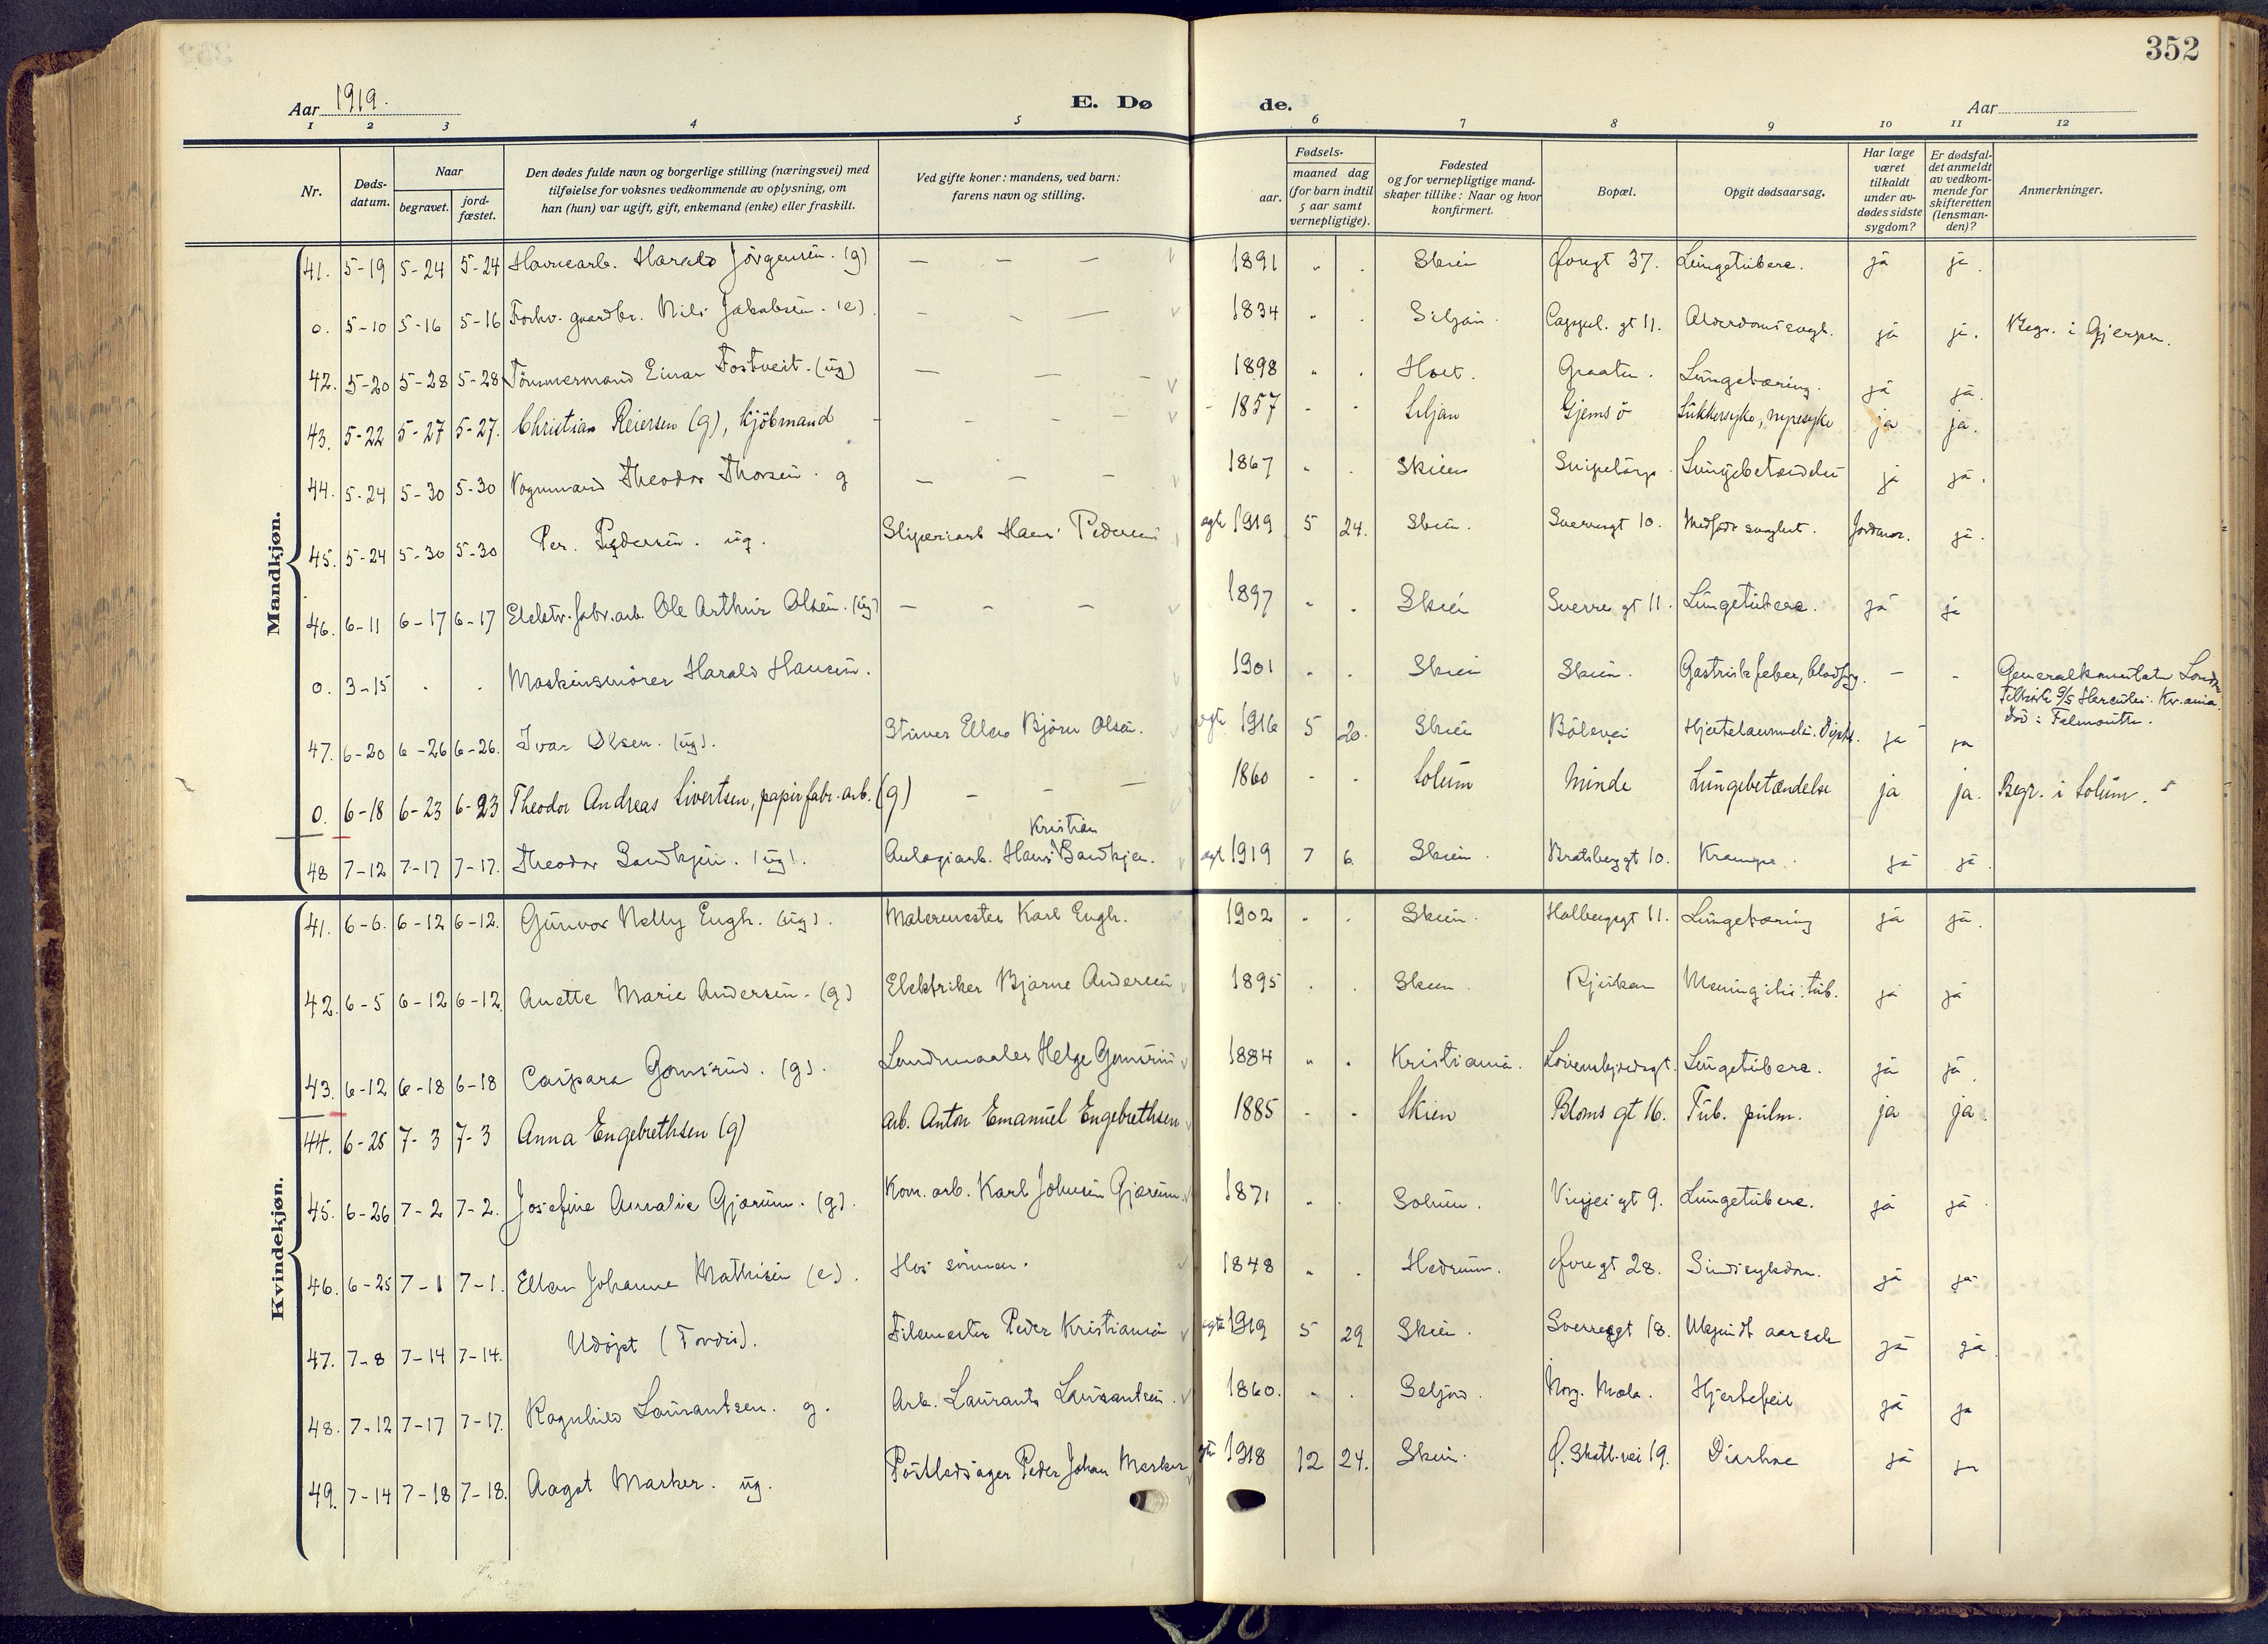 352
Aar 1919.
E. Dø
de.
Aar
1 2 3 4 5 6 7 8 9 10 11 12
Nr.
Døds-
datum.
Naar
begravet.
jord-
fæstet.
Den dødes fulde navn og borgerlige stilling (næringsvei) med
tilføielse for voksnes vedkommende av oplysning, om
han (hun) var ugift, gift, enkemand (enke) eller fraskilt.
Ved gifte koner: mandens, ved barn:
farens navn og stilling.
Fødsels-
aar.
maaned dag
(for barn indtil
5 aar samt
vernepligtige).
Fødested
og for vernepligtige mand-
skaper tillike: Naar og hvor
konfirmert.
Bopæl.
Opgit dødsaarsag.
Har læge
været
tilkaldt
under av-
dødes sidste
sygdom?
Er dødsfal-
det anmeldt
av vedkom-
mende for
skifteretten
(lensman-
den)?
Anmerkninger.
Mandkjøn.
41. 5-19 5-24 5-24 Havnearb. Harald Jörgensen. (g) — — — 1891 Skien Övregt 37. Lungetuberc. ja ja.
0. 5-10 5-16 5-16 Forhv. gaardbr. Nils Jakobsen. (e) — — — 1834 Siljan. Cappel. gt 11. Alderdomssvagh. ja ja. Begr. i Gjerpen.
42. 5-20 5-28 5-28 Tömmermand Einar Fostveit. (ug) — — — 1898 Holt. Graaten. Lungetæring. ja ja.
43. 5-22 5-27 5-27. Christian Reiersen (g), Kjöbmand - - - - 1857 Siljan Gjemsö Sukkersyke, nyresyke ja ja.
44. 5-24 5-30 5-30 Vognmand Theodor Thorsen. g — — — 1867 Skien Snipetorp. Lungebetændelse ja ja.
45. 5-24 5-30 5-30 Per. Pedersen. ug. Sliperiarb Hans Pedersen agte 1919 5 24. Skien. Sverresgt 10. Medfödt svaghet. Jordmor. ja.
46. 6-11 6-17 6-17 Elektr. fabr. arb. Ole Arthur Olsen. (ug) — — — 1897 Skien Sverresgt 11. Lungetuberc. ja ja
0. 3-15 . . Maskinsmörer Harald Hansen. 1901 Skien Skien. Gastrisk feber, - - Generalkonsulatet London
Tilhörte S/S Hercules. Kr.ania.
Död i Falmouth.
47. 6-20 6-26 6-26. Ivar Olsen. (ug). Stuer Ellev Björn Olsen. agte 1916 5 20. Skien Bölevei ja ja
0. 6-18 6-23 6-23 Theodor Andreas Sivertsen, papirfabr. arb. (g) — — — 1860 Solum Minde Lungebetændelse ja ja. Begr. i Solum.
48 7-12 7-17 7-17. Theodor Sandkjen. (ug). Anlægsarb. Hans Kristian Sandkjen. agt 1919 7 6. Skien. Bratsberggt 10. Krampe. ja ja.
Kvindekjøn.
41. 6-6. 6-12 6-12. Gunvor Nelly Engh. (ug). Malermester Karl Engh. 1902 Skien. Holbergsgt 11. Lungetæring ja ja.
42. 6-5 6-12 6-12. Anette Marie Andersen. (g) Elektriker Bjarne Andersen 1895 Skien. Rjukan Meningitis. tub. ja ja
43. 6-12 6-18 6-18 Caspara Gomsrud. (g). Landmaaler Helge Gomsrud 1884 Kristiania. Lövenskjoldsgt. Lungetuberc. ja ja.
44. 6-25 7-3 7-3 Anna Engebrethsen (g) arb. Anton Emanuel Engebrethsen 1885 Skien Bloms gt 16. Tub. pulm. ja ja.
45. 6-26 7-2 7-2. Josefine Amalie Gjærum. (g). Kom. arb. Karl Johnsen Gjærum. 1871 Solum. Vinjes gt 9. Lungetuberc. ja ja.
46. 6-25 7-1 7-1. Ellen Johanne Mathisen (e). Hos sönnen. 1848 Hedrum. Övregt 28. Sindssykdom. ja ja.
47. 7-8 7-14 7-14. Udöpt (Tordis). Filemester Peder Kristiansen agte 1919 5 29 Skien. Sverresgt 18. Ukjendt aarsak ja ja.
48. 7-12 7-17 7-17. Ragnhild Laurantsen. g. Arb. Laurants Laurantsen. 1860. Seljord. Mæla. Hjertefeil ja ja
49. 7-14 7-18 7-18. Aagot Marker. ug. Postledsager Peder Johan Marker gte 1918 12 24. Skien. Ö. Skotl.vei 19. Diarhoe ja ja